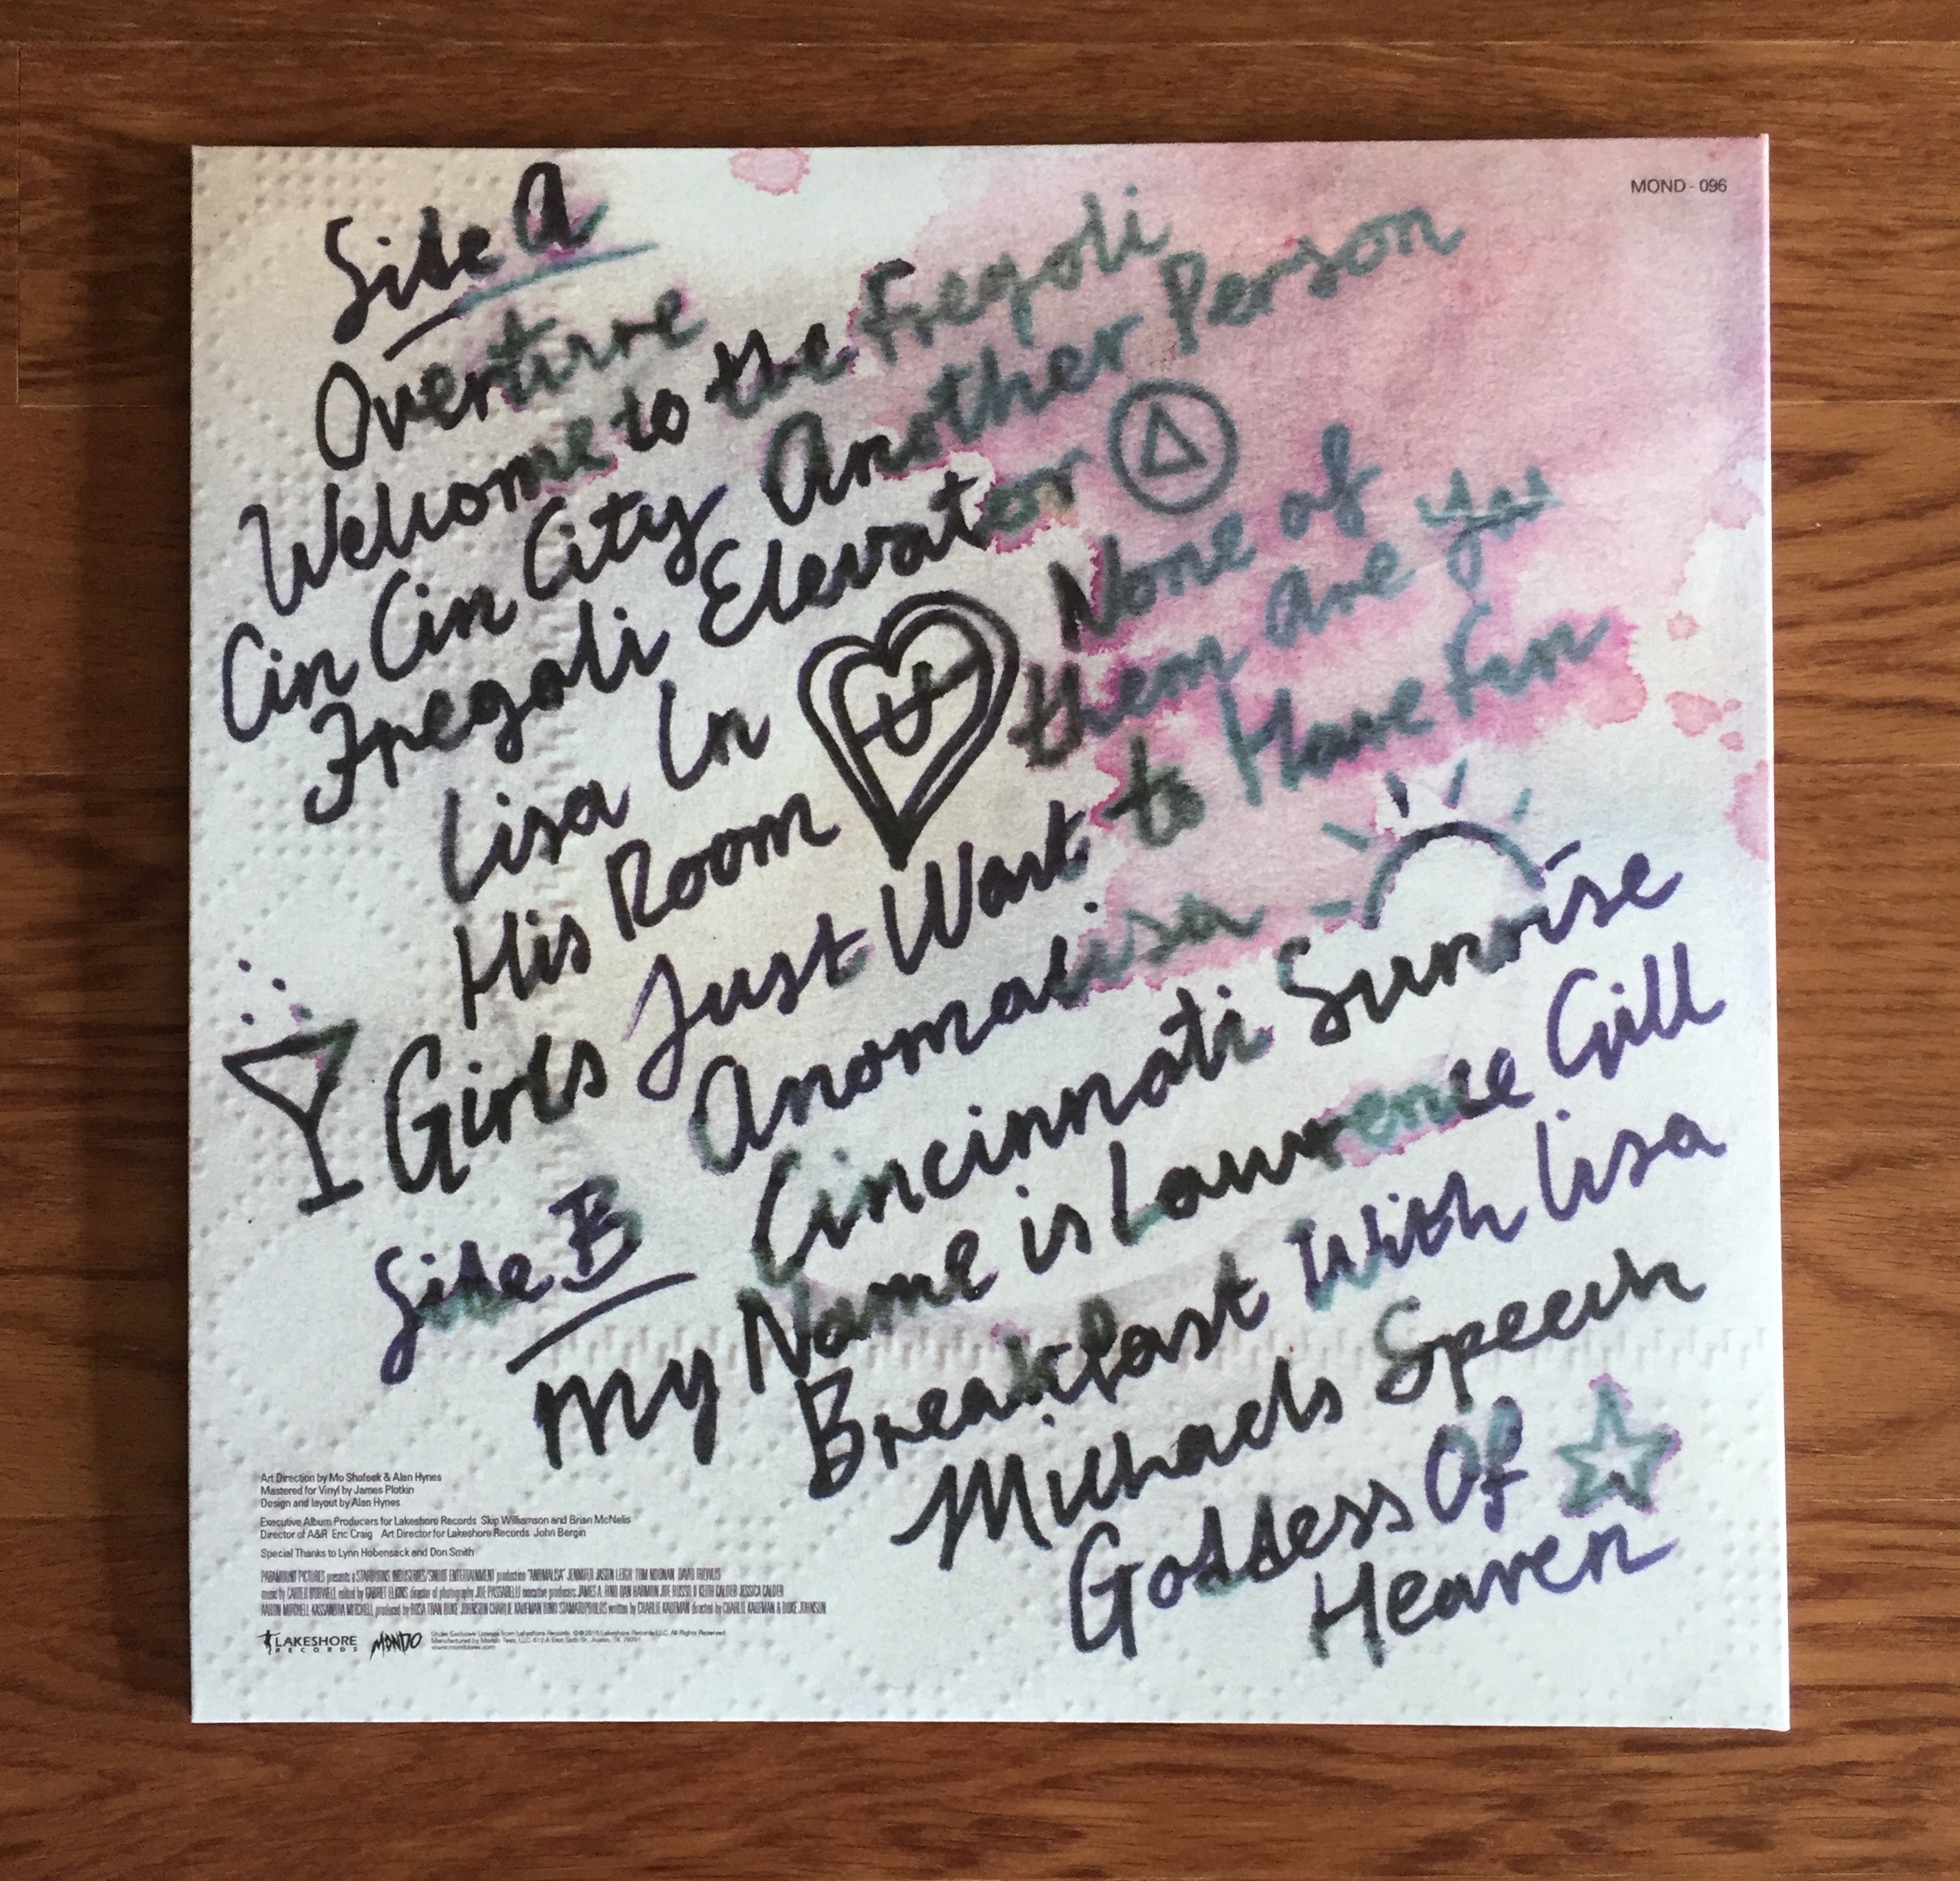 MOND - 096
Side A
Overture
Welcome to the Fregoli
Cin Cin City Another Person
Fregoli Elevator
Lisa In
His Room
None of
them are you
Girls Just Want to Have Fun
Anomalisa
Side B
Cincinnati Sunrise
My Name is Lawrence Gill
Breakfast With Lisa
Michaels Speech
Goddess Of
Heaven
Art Direction by Mo Shafeek & Alan Hynes
Mastered for Vinyl by James Plotkin
Design and layout by Alan Hynes
Executive Album Producers for Lakeshore Records Skip Williamson and Brian McNelis
Director of A&R Eric Craig Art Director for Lakeshore Records John Bergin
Special Thanks to Lynn Hobensack and Don Smith
PARAMOUNT PICTURES presents a STARBURNS INDUSTRIES/SNOOT ENTERTAINMENT production "ANOMALISA" JENNIFER JASON LEIGH TOM NOONAN DAVID THEWLIS
music by CARTER BURWELL edited by GARRET ELKINS director of photography JOE PASSARELLI executive producers JAMES A. FINO DAN HARMON JOE RUSSO II KEITH CALDER JESSICA CALDER
AARON MITCHELL KASSANDRA MITCHELL produced by ROSA TRAN DUKE JOHNSON CHARLIE KAUFMAN DINO STAMATOPOULOS written by CHARLIE KAUFMAN directed by CHARLIE KAUFMAN & DUKE JOHNSON
LAKESHORE
RECORDS
MONDO
Under Exclusive License from Lakeshore Records. ©℗2015 Lakeshore Records LLC. All Rights Reserved.
Manufactured by Mondo Tees, LLC. 612 A East Sixth St. Austin, TX 78701.
www.mondotees.com